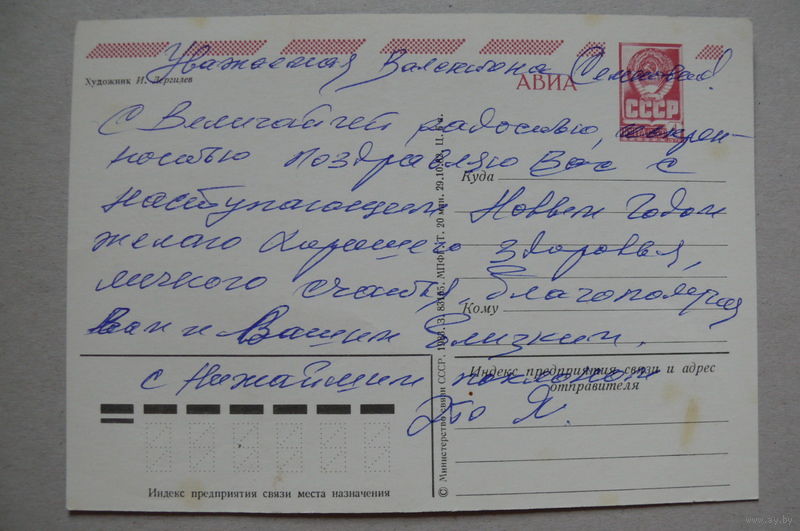 Уважаемая Валентина Семеновна!
Художник И. Дергилев
АВИА
СССР
С Величайшей радостью, искрен-
ностью поздравляю Вас с
наступающим Новым Годом
желаю хорошего здоровья,
личного счастья, благополучия
Вам и Вашим Близким.
с Нижайшим поклоном
Я.
Куда
Кому
Индекс предприятия связи и адрес
отправителя
Индекс предприятия связи места назначения
© Министерство связи СССР. 1983. З. 83155. МПФГ. Т. 20 млн. 29.10.82. Ц. 6 к.
www.ay.by